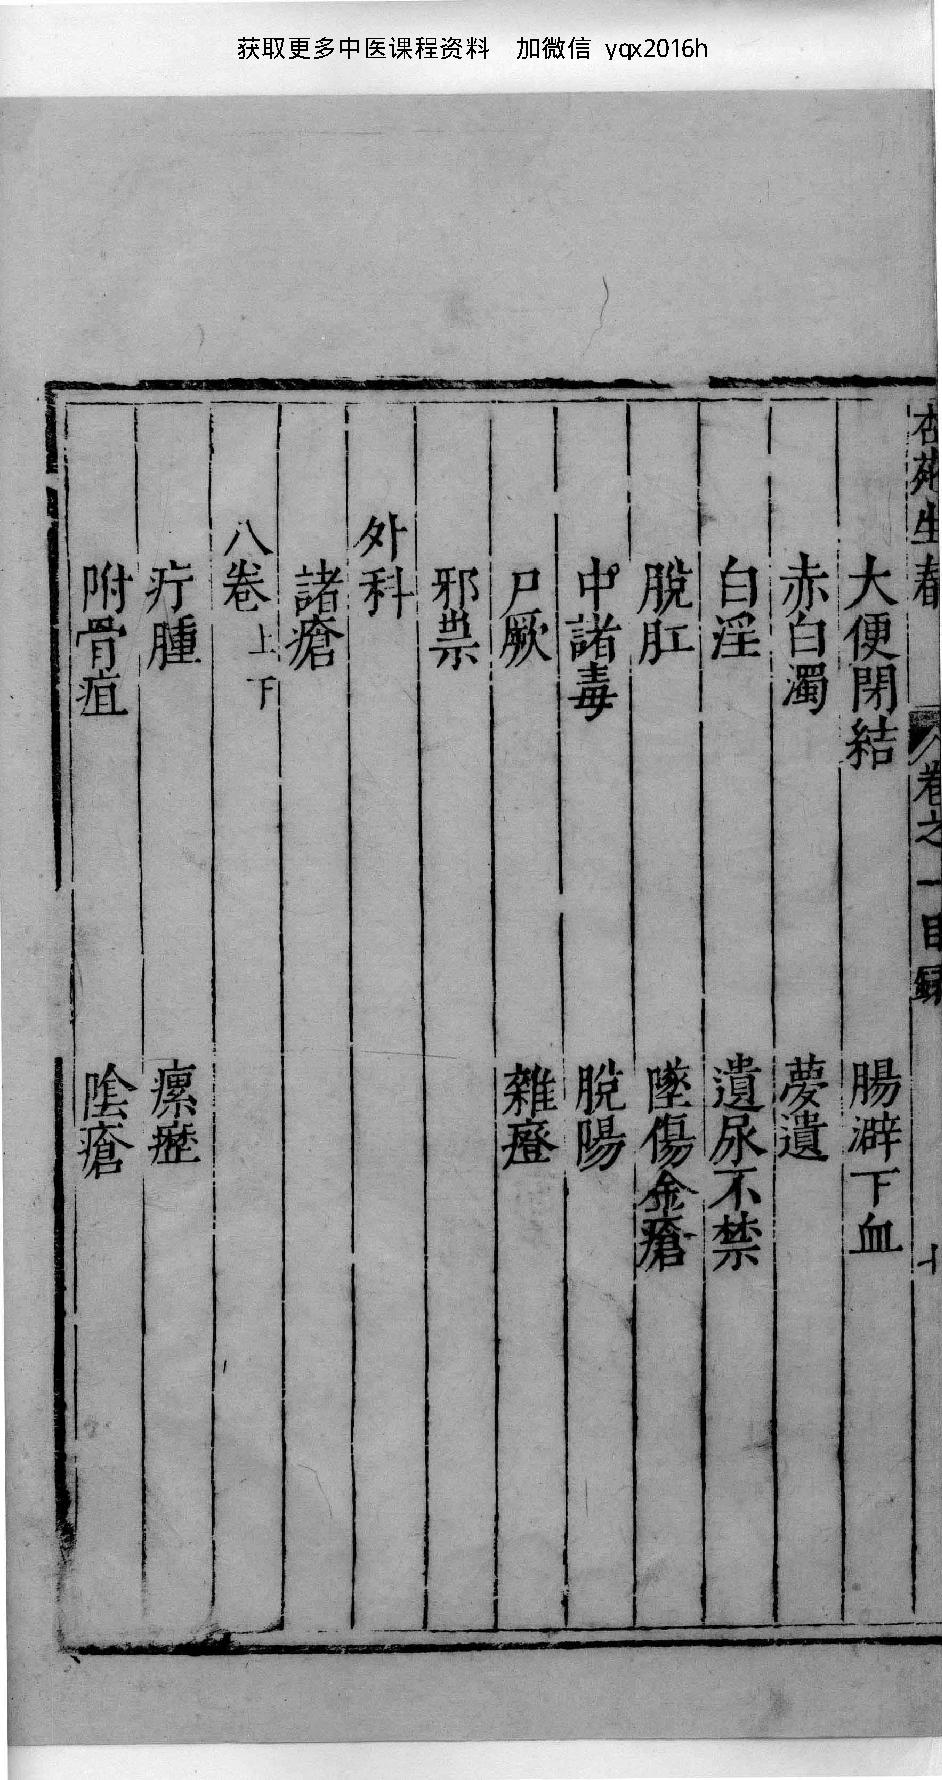 获取更多中医课程资料 加微信 yqx2016h
杏苑生春 卷之一目錄 十
大便閉結 腸澼下血
赤白濁 夢遺
白淫 遺尿不禁
脫肛 墜傷金瘡
中諸毒 脫陽
尸厥 雜癥
邪祟
外科
諸瘡
八卷上下
疔腫 瘰癧
附骨疽 陰瘡